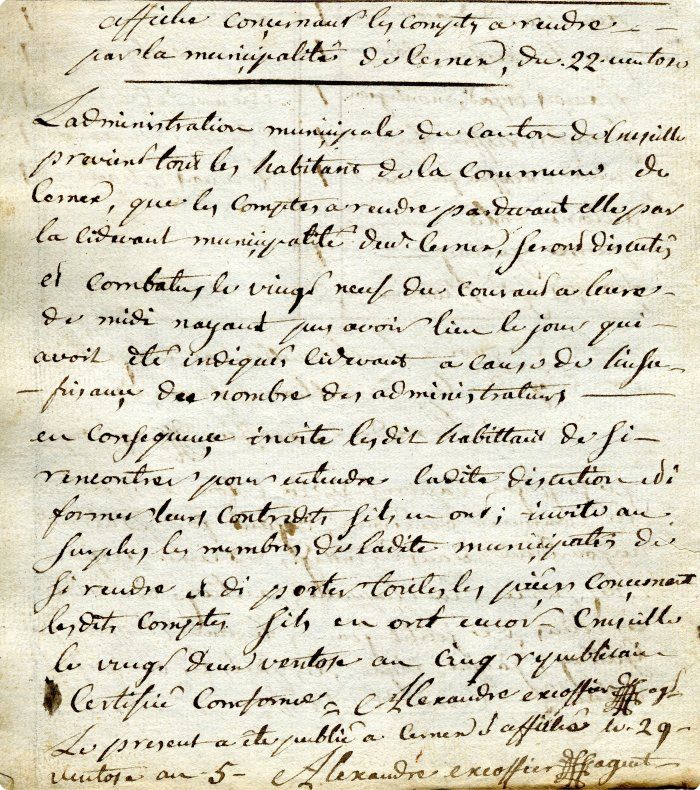 affiche conçernant les compts a rendre
par la muniçipalité de Cernex, du 22 ventose
Ladministration muniçipale du Canton de Cruseille
previent tous les habitant de la Commune de
Cernex, que les comptes a rendre pardevant elle par
la cidevant muniçipalité deud. Cernex, seront discutés
et combatus, le vingt neuf du courant a leure
de midi nayant pus avoir lieu le jour qui
avoit été indiqués cidevant a cause de linsu-
fisançe du nombre des administrateurs
en conséquençe invite lesdit habittant de si
rencontrer pour entendre ladite discution et di
former leurs contredits sils en ont ; invite au
surplus les membres de ladite muniçipalité de
si rendre et di porter toutes les pièçes conçernant
lesdits comptes sils en ont encor Cruseille
le vingt deux ventose an cinq républicain
Certifié Conforme Alexandre excoffier agt
Le present a été publié a Cernex et affiché le 29
ventose an 5 - Alexandre excoffier agent